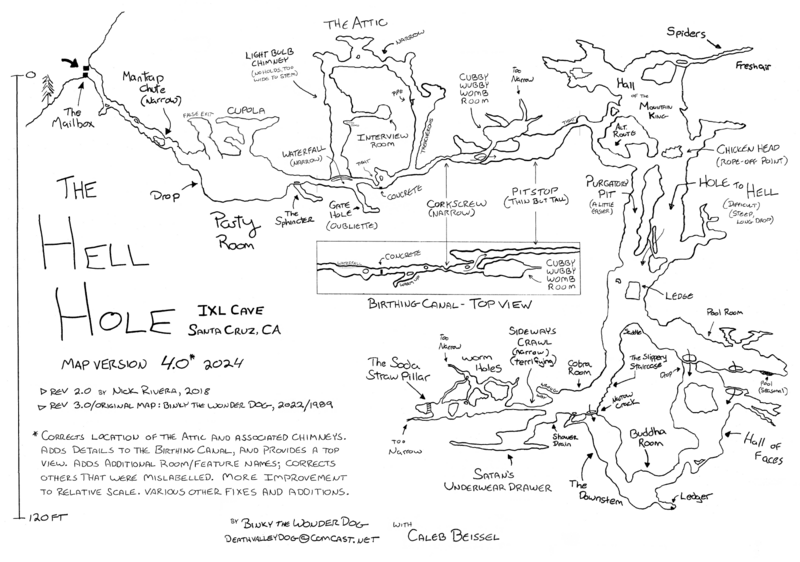 THE ATTIC
NARROW
LIGHT BULB
CHIMNEY
(NO HOLDS, TOO
WIDE TO STEM)
CUBBY
WUBBY
WOMB
ROOM
Too
Narrow
Spiders
Fresh air
0
The
Mailbox
Mantrap
Chute
(Narrow)
FALSE EXIT
CUPOLA
PIPE
INTERVIEW
ROOM
TREACHEROUS
TIGHT
Hall
OF THE
Mountain
King
ALT.
ROUTE
CHICKEN HEAD
(ROPE-OFF POINT)
WATERFALL
(NARROW)
TIGHT
CONCRETE
Drop
Party
Room
The
Sphincter
GATE
HOLE
(OUBLIETTE)
CORKSCREW
(NARROW)
PITSTOP
(THIN BUT TALL)
PURGATORY
PIT
(A LITTLE
EASIER)
HOLE TO
HELL
(DIFFICULT)
(STEEP,
LONG DROP)
THE
HELL
HOLE
IXL CAVE
SANTA CRUZ, CA
WATERFALL
CONCRETE
CUBBY
WUBBY
WOMB
ROOM
BIRTHING CANAL - TOP VIEW
LEDGE
MAP VERSION 4.0* 2024
▷ REV 2.0 BY NICK RIVERA, 2018
▷ REV 3.0/ORIGINAL MAP: BINKY THE WONDER DOG, 2022/1989
Pool Room
Pool
(Seasonal)
The Slippery
Staircase
SIDEWAYS
CRAWL
(narrow)
(terrifying)
Too
Narrow
Worm
Holes
The Soda
Straw Pillar
Cobra
Room
Narrow
Crack
Too
Narrow
Shower
Drain
Buddha
Room
Hall of
Faces
SATAN'S
UNDERWEAR DRAWER
The
Downstem
Ledger
* CORRECTS LOCATION OF THE ATTIC AND ASSOCIATED CHIMNEYS.
ADDS DETAILS TO THE BIRTHING CANAL, AND PROVIDES A TOP
VIEW. ADDS ADDITIONAL ROOM/FEATURE NAMES; CORRECTS
OTHERS THAT WERE MISLABELLED. MORE IMPROVEMENT
TO RELATIVE SCALE. VARIOUS OTHER FIXES AND ADDITIONS.
120 FT
BY BINKY THE WONDER DOG
DEATHVALLEYDOG@COMCAST.NET
WITH
CALEB BEISSEL